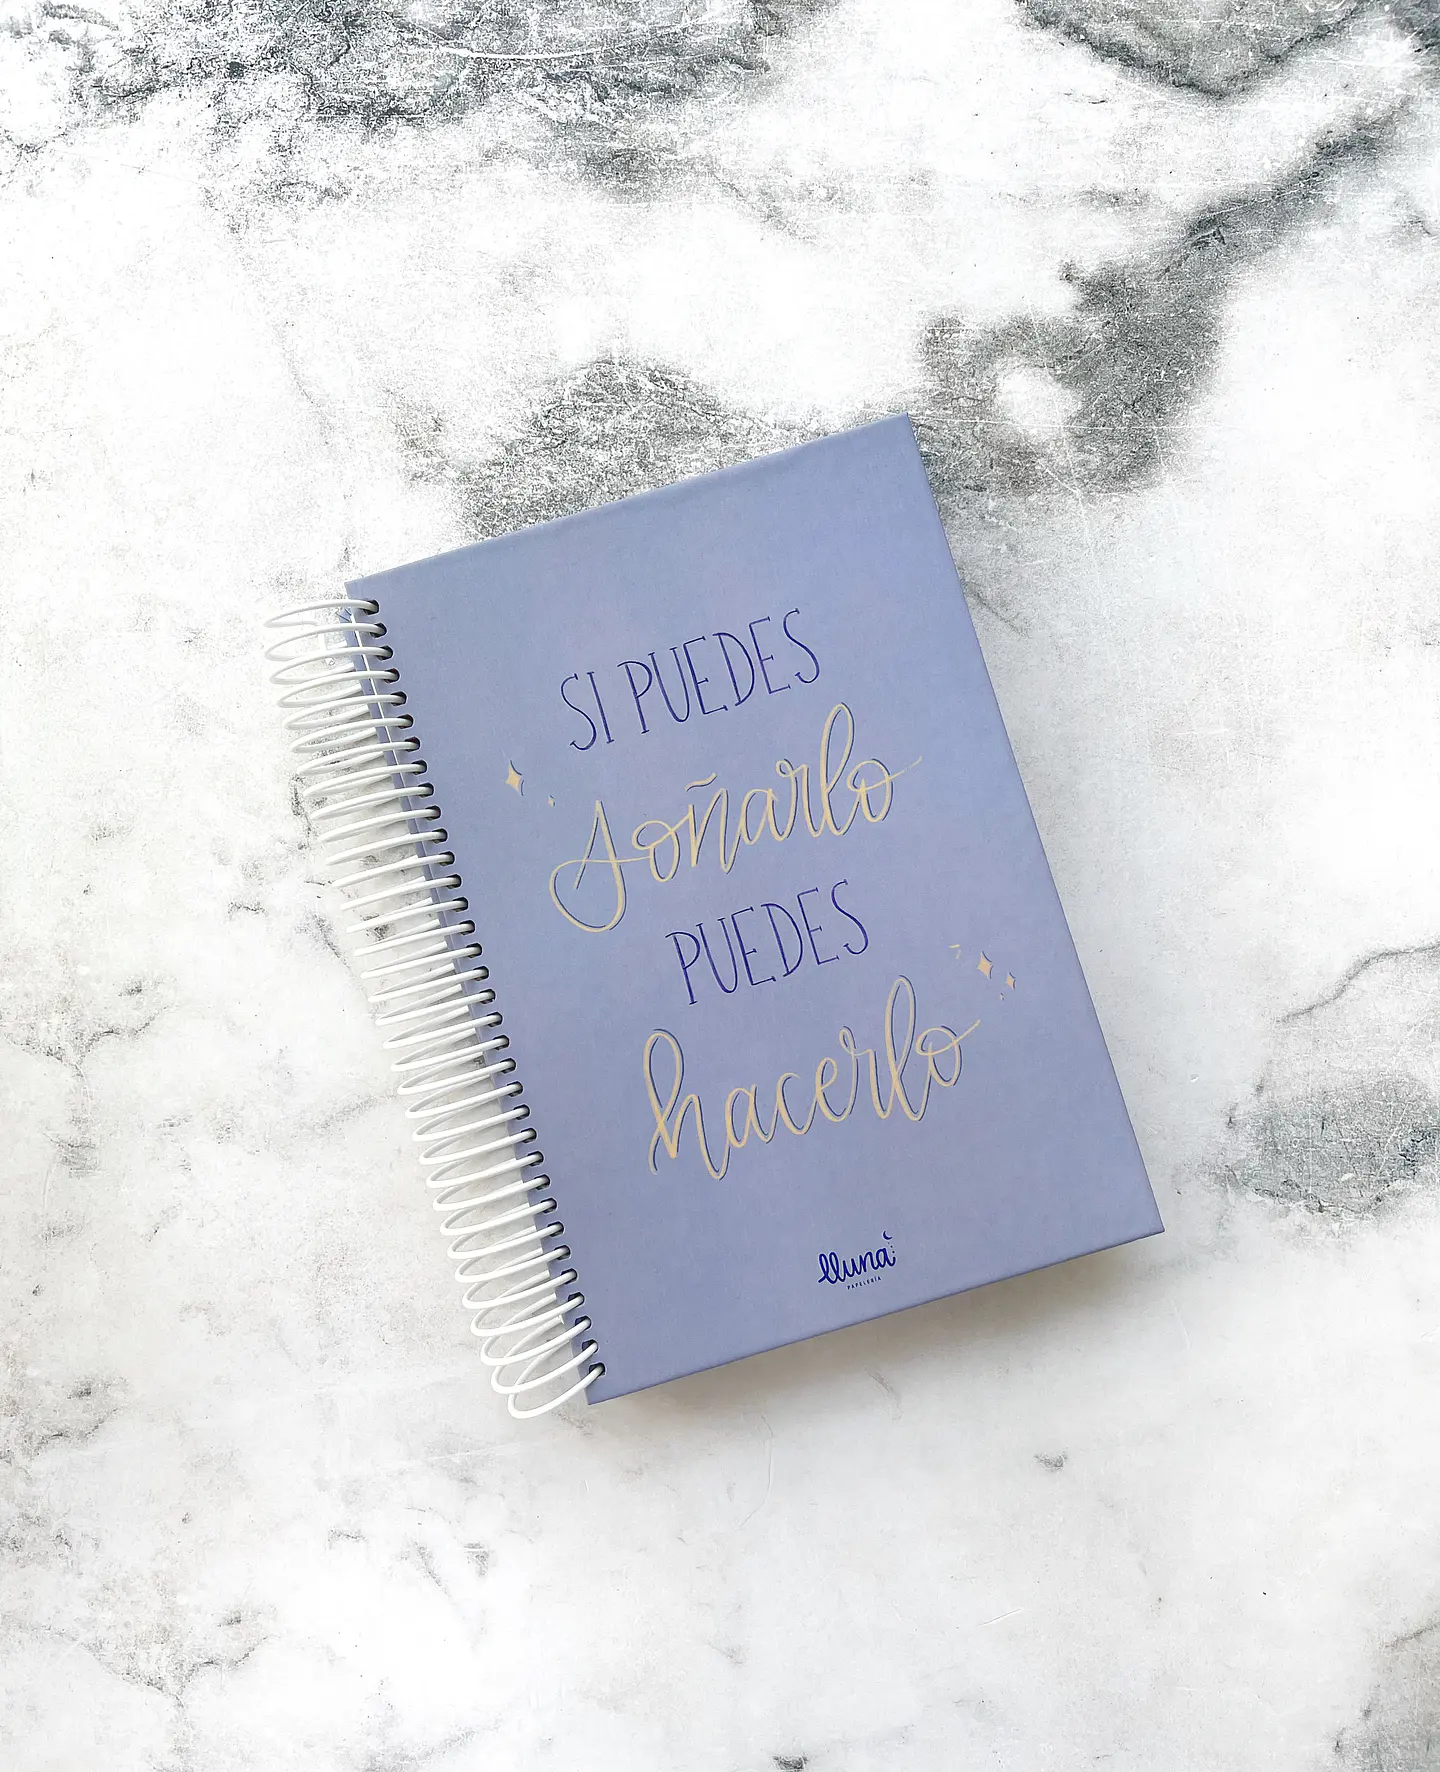 SI PUEDES
soñarlo
PUEDES
hacerlo
lluna
PAPELERÍA